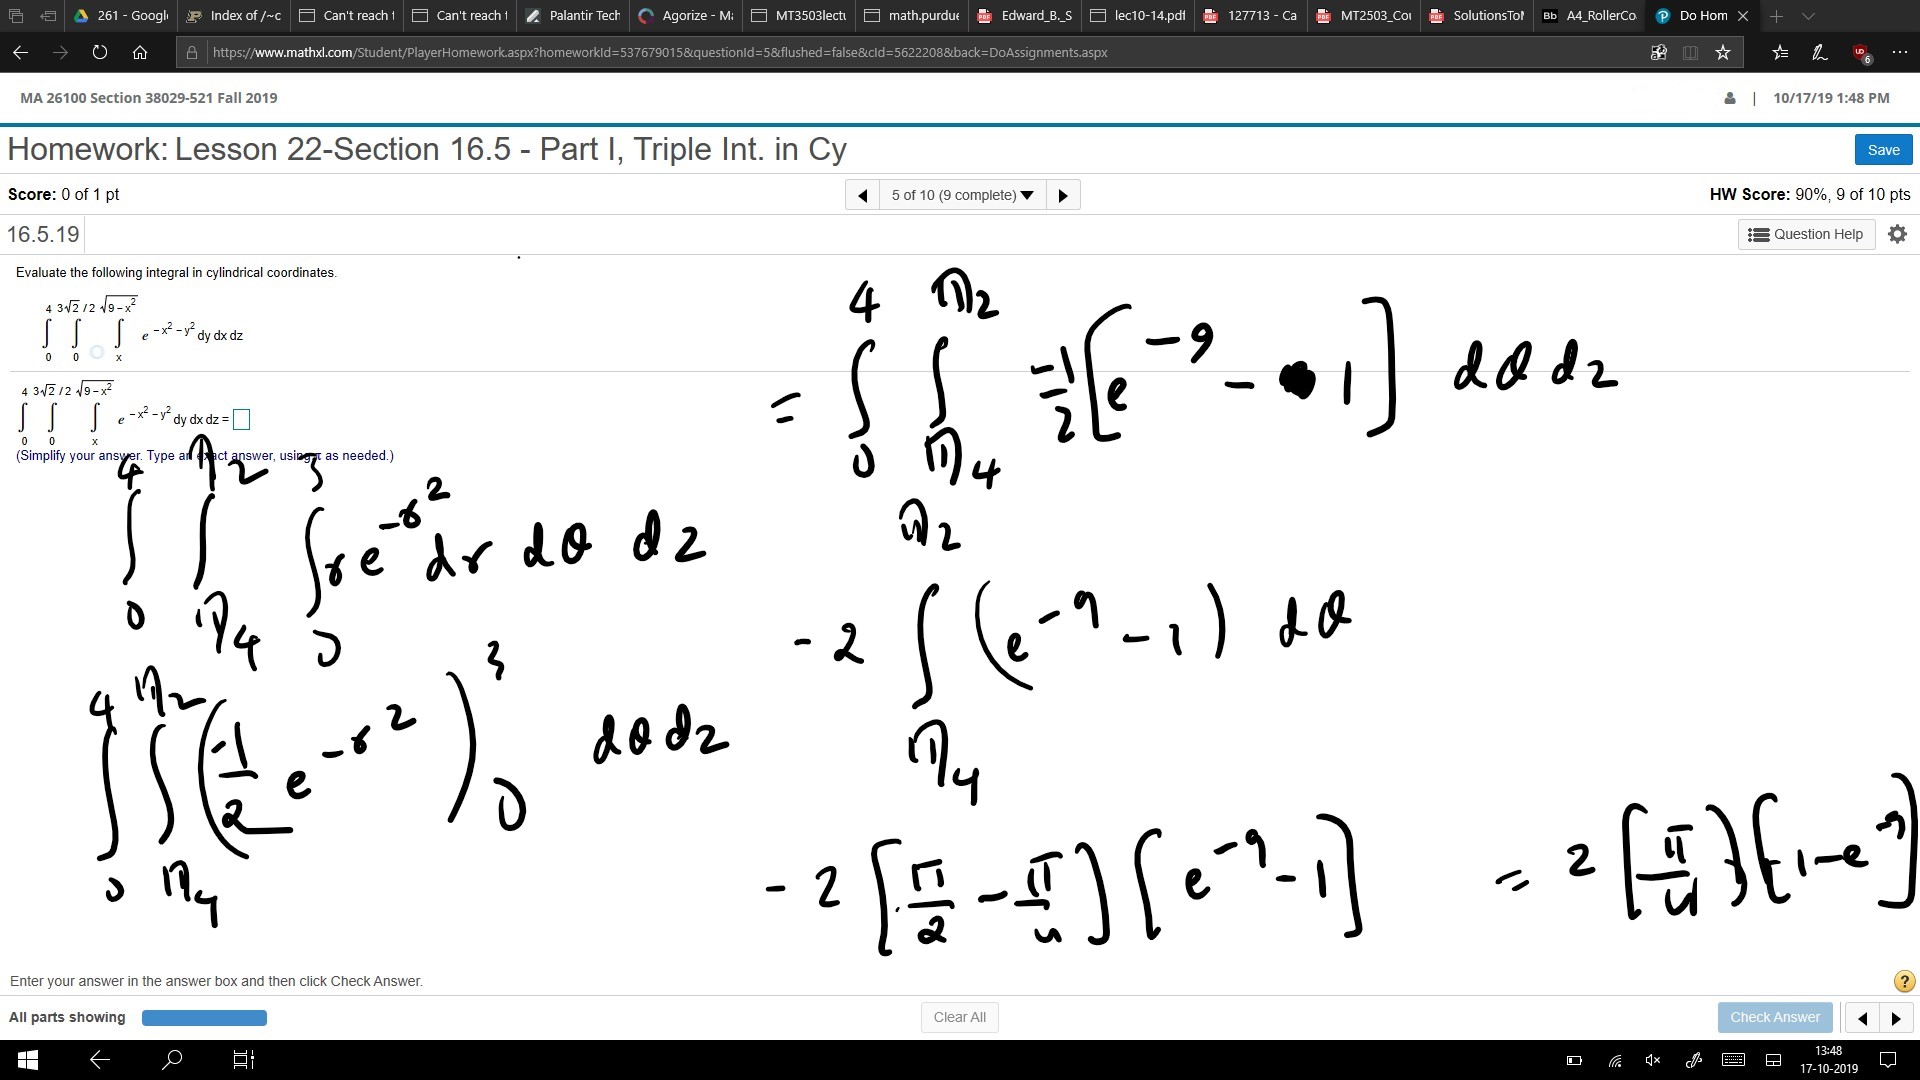 261 - Googl
Index of /~c
Can't reach t
Can't reach t
Palantir Tech
Agorize - Ma
MT3503lectu
math.purdue
Edward_B._S
lec10-14.pdf
127713 - Ca
MT2503_Cou
SolutionsToM
Bb A4_RollerCo
Do Hom
https://www.mathxl.com/Student/PlayerHomework.aspx?homeworkId=537679015&questionId=5&flushed=false&cId=5622208&back=DoAssignments.aspx
MA 26100 Section 38029-521 Fall 2019
| 10/17/19 1:48 PM
Homework: Lesson 22-Section 16.5 - Part I, Triple Int. in Cy
Save
Score: 0 of 1 pt
5 of 10 (9 complete)
HW Score: 90%, 9 of 10 pts
16.5.19
Question Help
Evaluate the following integral in cylindrical coordinates.
∫_0^4 ∫_0^{3√2/2} ∫_x^{√9-x²} e^{-x²-y²} dy dx dz
∫_0^4 ∫_0^{3√2/2} ∫_x^{√9-x²} e^{-x²-y²} dy dx dz =
(Simplify your answer. Type an exact answer, using π as needed.)
∫_0^4 ∫_{π/4}^{π/2} ∫_0^3 r e^{-r²} dr dθ dz
∫_0^4 ∫_{π/4}^{π/2} (-1/2 e^{-r²})_0^3 dθ dz
= ∫_0^4 ∫_{π/4}^{π/2} -1/2 [e^{-9} - 1] dθ dz
-2 ∫_{π/4}^{π/2} (e^{-9} - 1) dθ
-2 [π/2 - π/4] [e^{-9} - 1] = 2 [π/4] [1 - e^{-9}]
Enter your answer in the answer box and then click Check Answer.
?
All parts showing
Clear All
Check Answer
13:48
17-10-2019